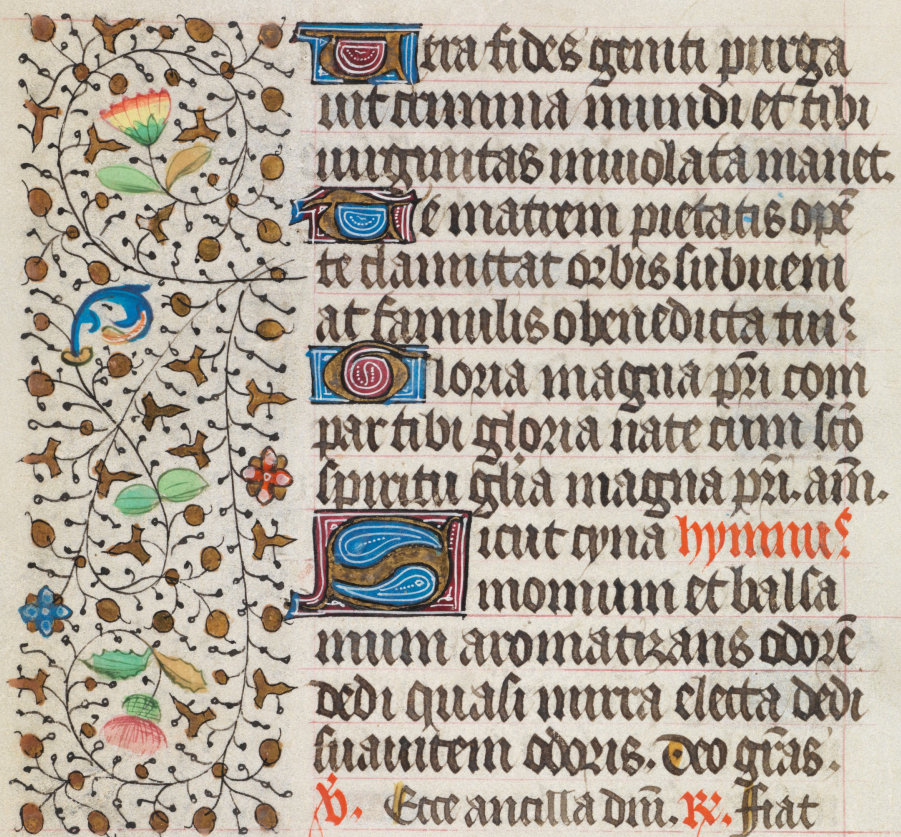 Uera fides geniti purga
uit crimina mundi et tibi
uirginitas inuiolata manet.
Te matrem pietatis opē
te clamittat orbis subueni
at famulis o benedicta tuis
Gloria magna pr̄i com
par tibi gloria nate cum sc̄o
spiritu gl̄ia magna pr̄i. am̄.
Sicut cyna hymnus
momum et balsa
mum aromatizans odorē
dedi quasi mirra electa dedi
suauitem odoris. Deo gr̄as.
V̄. Ecce ancilla dn̄i. R̄. Fiat